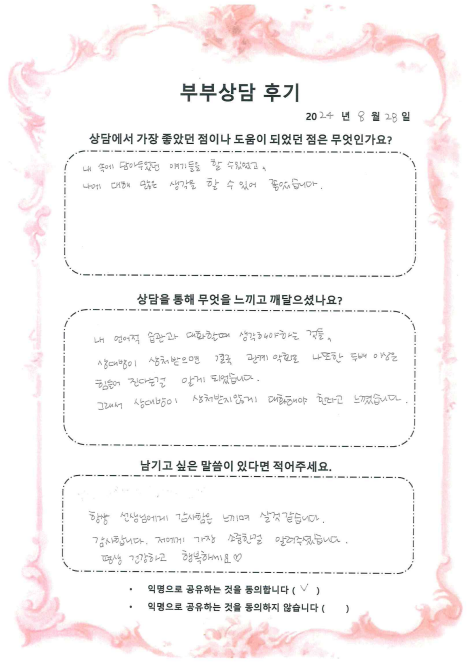 부부상담 후기
2024 년 8 월 28 일
상담에서 가장 좋았던 점이나 도움이 되었던 점은 무엇인가요?
내 속에 담아두었던 얘기들을 할 수있었고,
나에 대해 많은 생각을 할 수 있어 좋았습니다.
상담을 통해 무엇을 느끼고 깨달으셨나요?
내 언어적 습관과 대화할때 생각해야하는 것들,
상대방이 상처받으면 결국 관계 악화로 나또한 두배 이상은
힘들어 진다는걸 알게 되었습니다.
그래서 상대방이 상처받지않게 대화해야 한다고 느꼈습니다.
남기고 싶은 말씀이 있다면 적어주세요.
항상 선생님에게 감사함을 느끼며 살것같습니다.
감사합니다. 저에게 가장 소중한걸 알려주셨습니다.
평생 건강하고 행복하세요♡
• 익명으로 공유하는 것을 동의합니다 ( ✓ )
• 익명으로 공유하는 것을 동의하지 않습니다 ( )